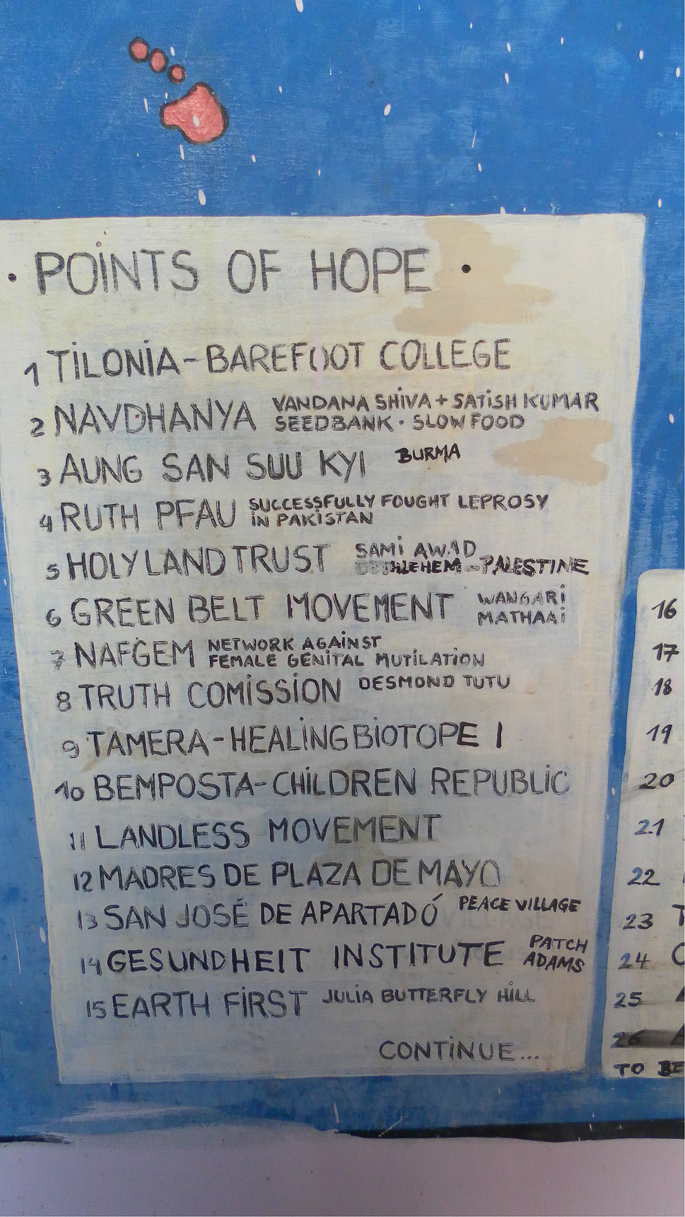 • POINTS OF HOPE •
1 TILONIA-BAREFOOT COLLEGE
2 NAVDHANYA VANDANA SHIVA + SATISH KUMAR
SEEDBANK · SLOW FOOD
3 AUNG SAN SUU KYI BURMA
4 RUTH PFAU SUCCESSFULLY FOUGHT LEPROSY
IN PAKISTAN
5 HOLY LAND TRUST SAMI AWAD
BETHLEHEM - PALESTINE
6 GREEN BELT MOVEMENT WANGARI
MATHAAI
7 NAFGEM NETWORK AGAINST
FEMALE GENITAL MUTILATION
8 TRUTH COMISSION DESMOND TUTU
9 TAMERA-HEALING BIOTOPE I
10 BEMPOSTA-CHILDREN REPUBLIC
11 LANDLESS MOVEMENT
12 MADRES DE PLAZA DE MAYO
13 SAN JOSÉ DE APARTADÓ PEACE VILLAGE
14 GESUNDHEIT INSTITUTE PATCH
ADAMS
15 EARTH FIRST JULIA BUTTERFLY HILL
CONTINUE...
16
17
18
19
20
21
22
23 T
24
25
26
TO BE